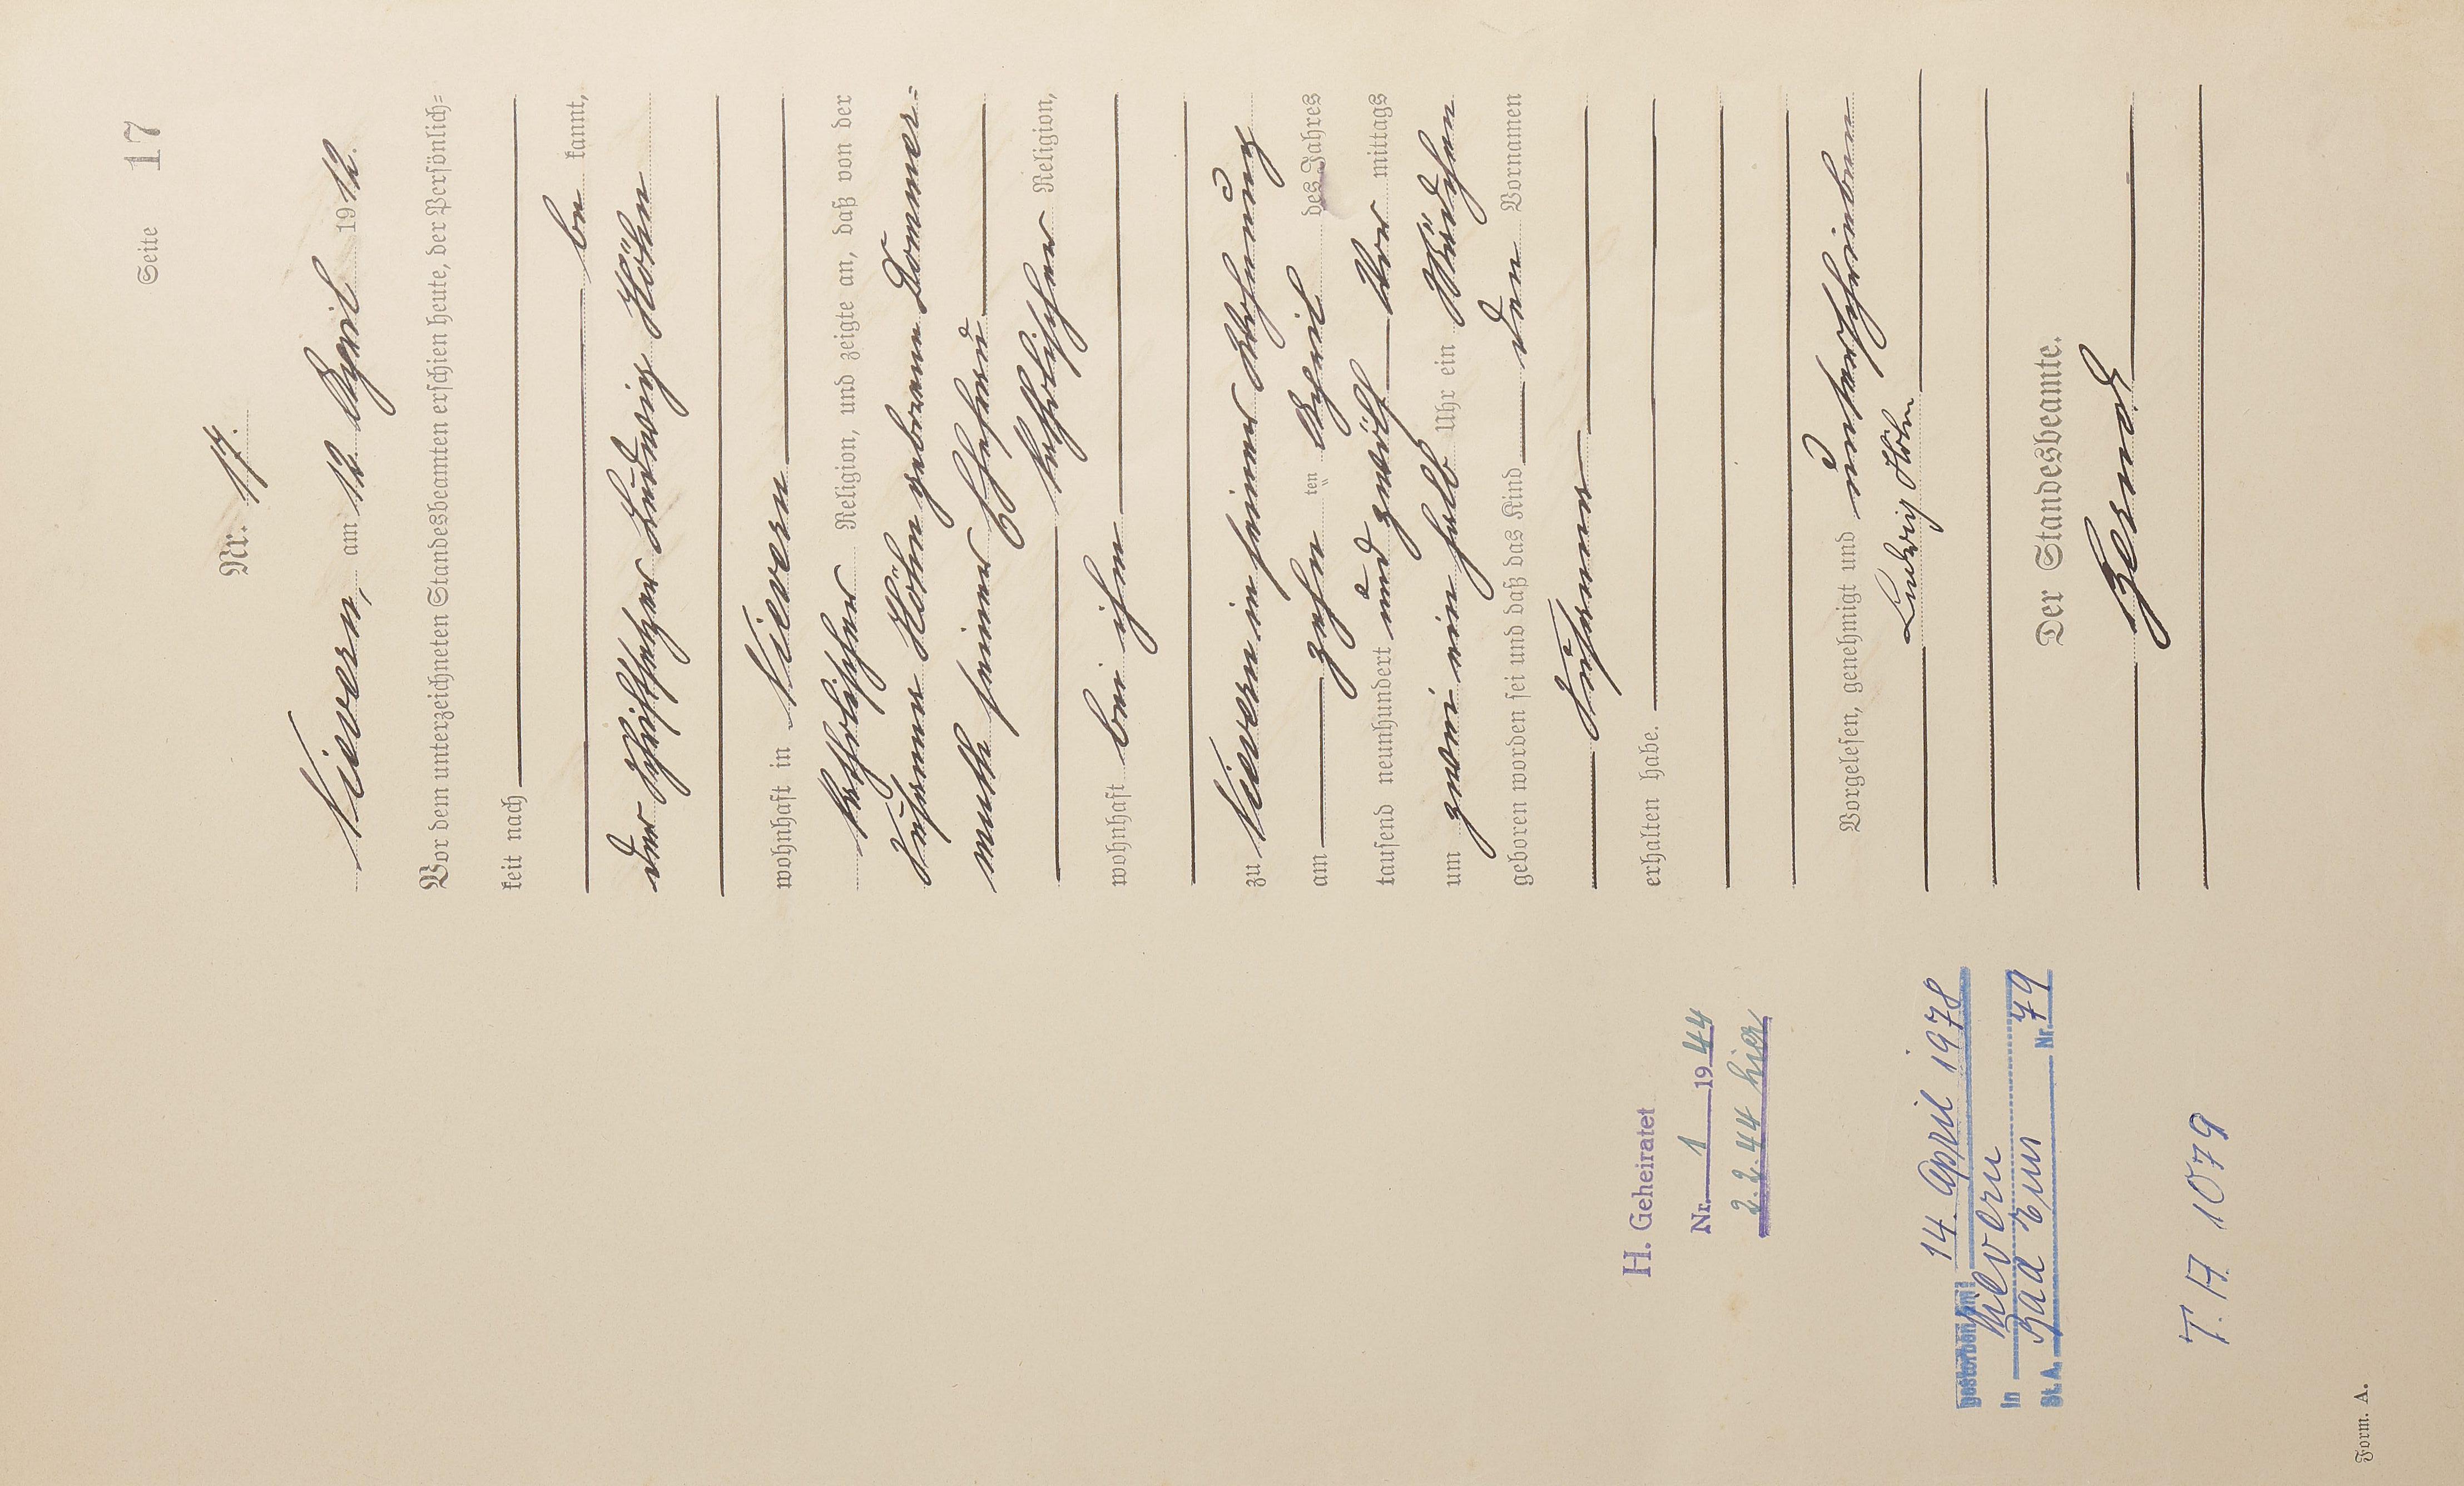 Seite 17
Nr. 17.
Nievern, am 12 April 1912.
Vor dem unterzeichneten Standesbeamten erschien heute, der Persönlich=
keit nach
be kannt,
der Ludwig Höhn
wohnhaft in Nievern
katholischer Religion, und zeigte an, daß von der
Höhn geborenen Dommer=
muth seiner Ehefrau
katholischer Religion,
wohnhaft bei ihm
zu Nievern in seiner Wohnung
am zehn ten April des Jahres
tausend neunhundert und zwölf Vor mittags
um zwei ein halb Uhr ein Mädchen
geboren worden sei und daß das Kind den Vornamen
Johanna
erhalten habe.
Vorgelesen, genehmigt und unterschrieben
Ludwig Höhn
Der Standesbeamte.
H. Geheiratet
Nr. 1 1944
2.2.44 hier
gestorben am 14. April 1978
in Nievern
St. A. Bad Ems Nr. 79
T. A 1079
Form. A.